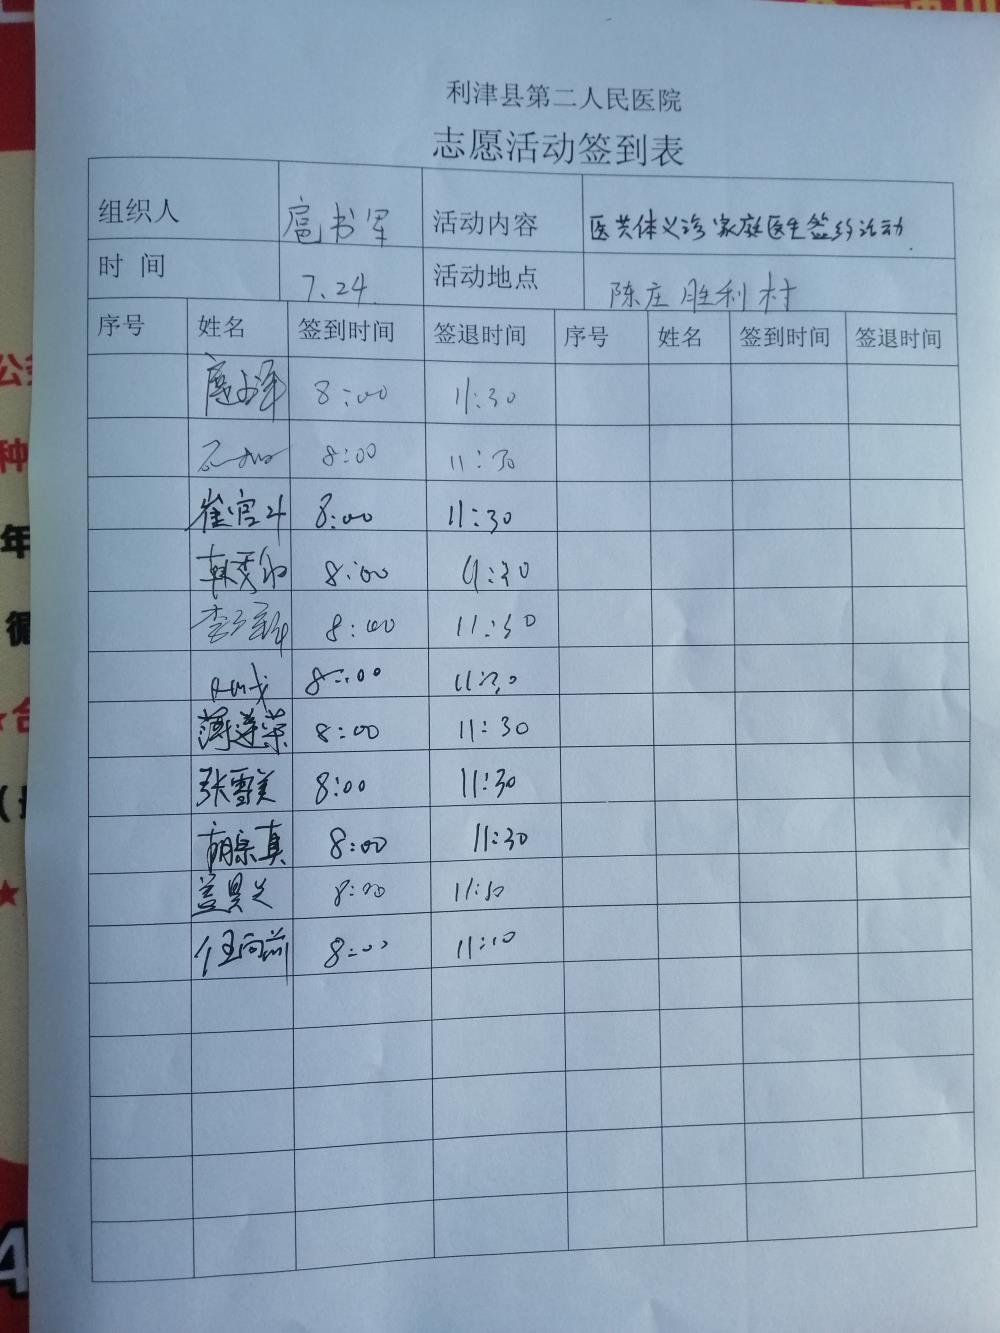 利津县第二人民医院
志愿活动签到表
组织人 扈书军 活动内容 医共体义诊 家庭医生签约活动.
时 间 7.24. 活动地点 陈庄胜利村
序号 姓名 签到时间 签退时间 序号 姓名 签到时间 签退时间
扈书军 8:00 11:30
8:00 11:30
崔官斗 8:00 11:30
8:00 11:30
8:00 11:30
8:00 11:30
薄莲荣 8:00 11:30
张雪美 8:00 11:30
胡宗真 8:00 11:30
8:00 11:30
任向前 8:00 11:10
年